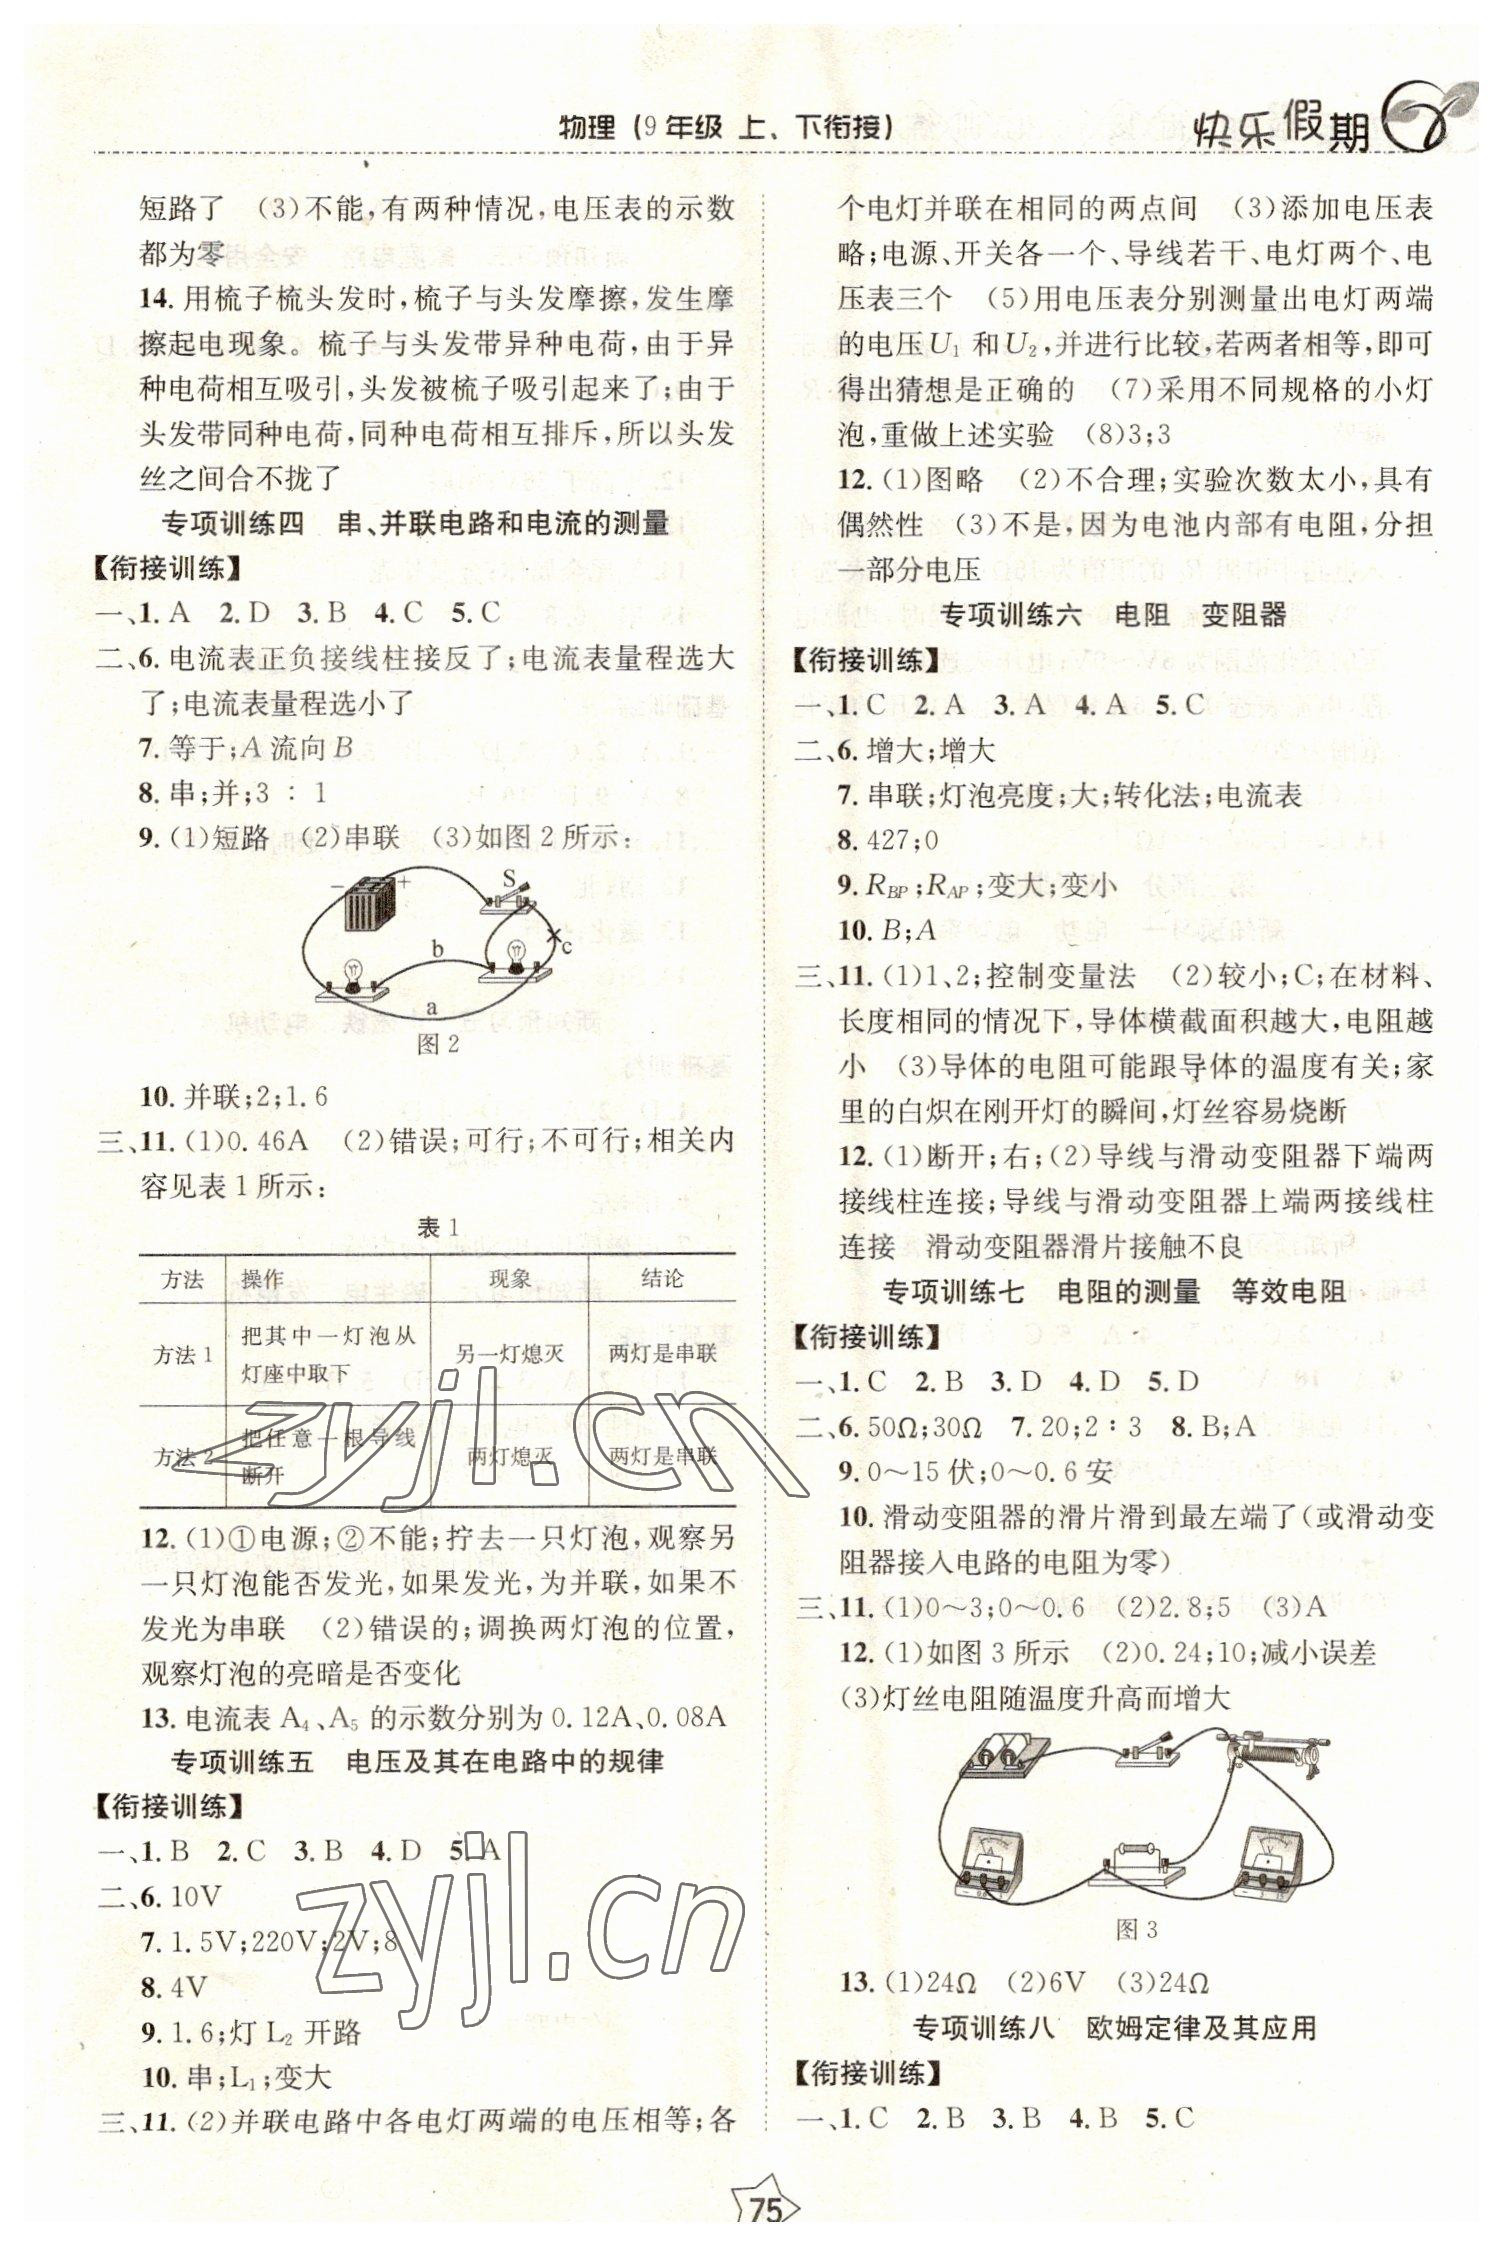 物理(9年级 上、下衔接)
快乐假期
短路了 (3)不能,有两种情况,电压表的示数
都为零
14.用梳子梳头发时,梳子与头发摩擦,发生摩
擦起电现象。梳子与头发带异种电荷,由于异
种电荷相互吸引,头发被梳子吸引起来了;由于
头发带同种电荷,同种电荷相互排斥,所以头发
丝之间合不拢了
专项训练四 串、并联电路和电流的测量
【衔接训练】
一、1.A 2.D 3.B 4.C 5.C
二、6.电流表正负接线柱接反了;电流表量程选大
了;电流表量程选小了
7.等于;A流向B
8.串;并;3∶1
9.(1)短路 (2)串联 (3)如图2所示:
－ + S
b c
a
图2
10.并联;2;1.6
三、11.(1)0.46A (2)错误;可行;不可行;相关内
容见表1所示:
表1
方法 操作 现象 结论
方法1 把其中一灯泡从灯座中取下 另一灯熄灭 两灯是串联
方法2 把任意一根导线断开 两灯熄灭 两灯是串联
12.(1)①电源;②不能;拧去一只灯泡,观察另
一只灯泡能否发光,如果发光,为并联,如果不
发光为串联 (2)错误的;调换两灯泡的位置,
观察灯泡的亮暗是否变化
13.电流表A₄、A₅的示数分别为0.12A、0.08A
专项训练五 电压及其在电路中的规律
【衔接训练】
一、1.B 2.C 3.B 4.D 5.A
二、6.10V
7.1.5V;220V;2V;8
8.4V
9.1.6;灯L₂开路
10.串;L₁;变大
三、11.(2)并联电路中各电灯两端的电压相等;各
个电灯并联在相同的两点间 (3)添加电压表
略;电源、开关各一个、导线若干、电灯两个、电
压表三个 (5)用电压表分别测量出电灯两端
的电压U₁和U₂,并进行比较,若两者相等,即可
得出猜想是正确的 (7)采用不同规格的小灯
泡,重做上述实验 (8)3;3
12.(1)图略 (2)不合理;实验次数太小,具有
偶然性 (3)不是,因为电池内部有电阻,分担
一部分电压
专项训练六 电阻 变阻器
【衔接训练】
一、1.C 2.A 3.A 4.A 5.C
二、6.增大;增大
7.串联;灯泡亮度;大;转化法;电流表
8.427;0
9.R_BP;R_AP;变大;变小
10.B;A
三、11.(1)1、2;控制变量法 (2)较小;C;在材料、
长度相同的情况下,导体横截面积越大,电阻越
小 (3)导体的电阻可能跟导体的温度有关;家
里的白炽在刚开灯的瞬间,灯丝容易烧断
12.(1)断开;右;(2)导线与滑动变阻器下端两
接线柱连接;导线与滑动变阻器上端两接线柱
连接 滑动变阻器滑片接触不良
专项训练七 电阻的测量 等效电阻
【衔接训练】
一、1.C 2.B 3.D 4.D 5.D
二、6.50Ω;30Ω 7.20;2∶3 8.B;A
9.0～15伏;0～0.6安
10.滑动变阻器的滑片滑到最左端了(或滑动变
阻器接入电路的电阻为零)
三、11.(1)0～3;0～0.6 (2)2.8;5 (3)A
12.(1)如图3所示 (2)0.24;10;减小误差
(3)灯丝电阻随温度升高而增大
A V
图3
13.(1)24Ω (2)6V (3)24Ω
专项训练八 欧姆定律及其应用
【衔接训练】
一、1.C 2.B 3.B 4.B 5.C
75
zyjl.cn
zyjl.cn